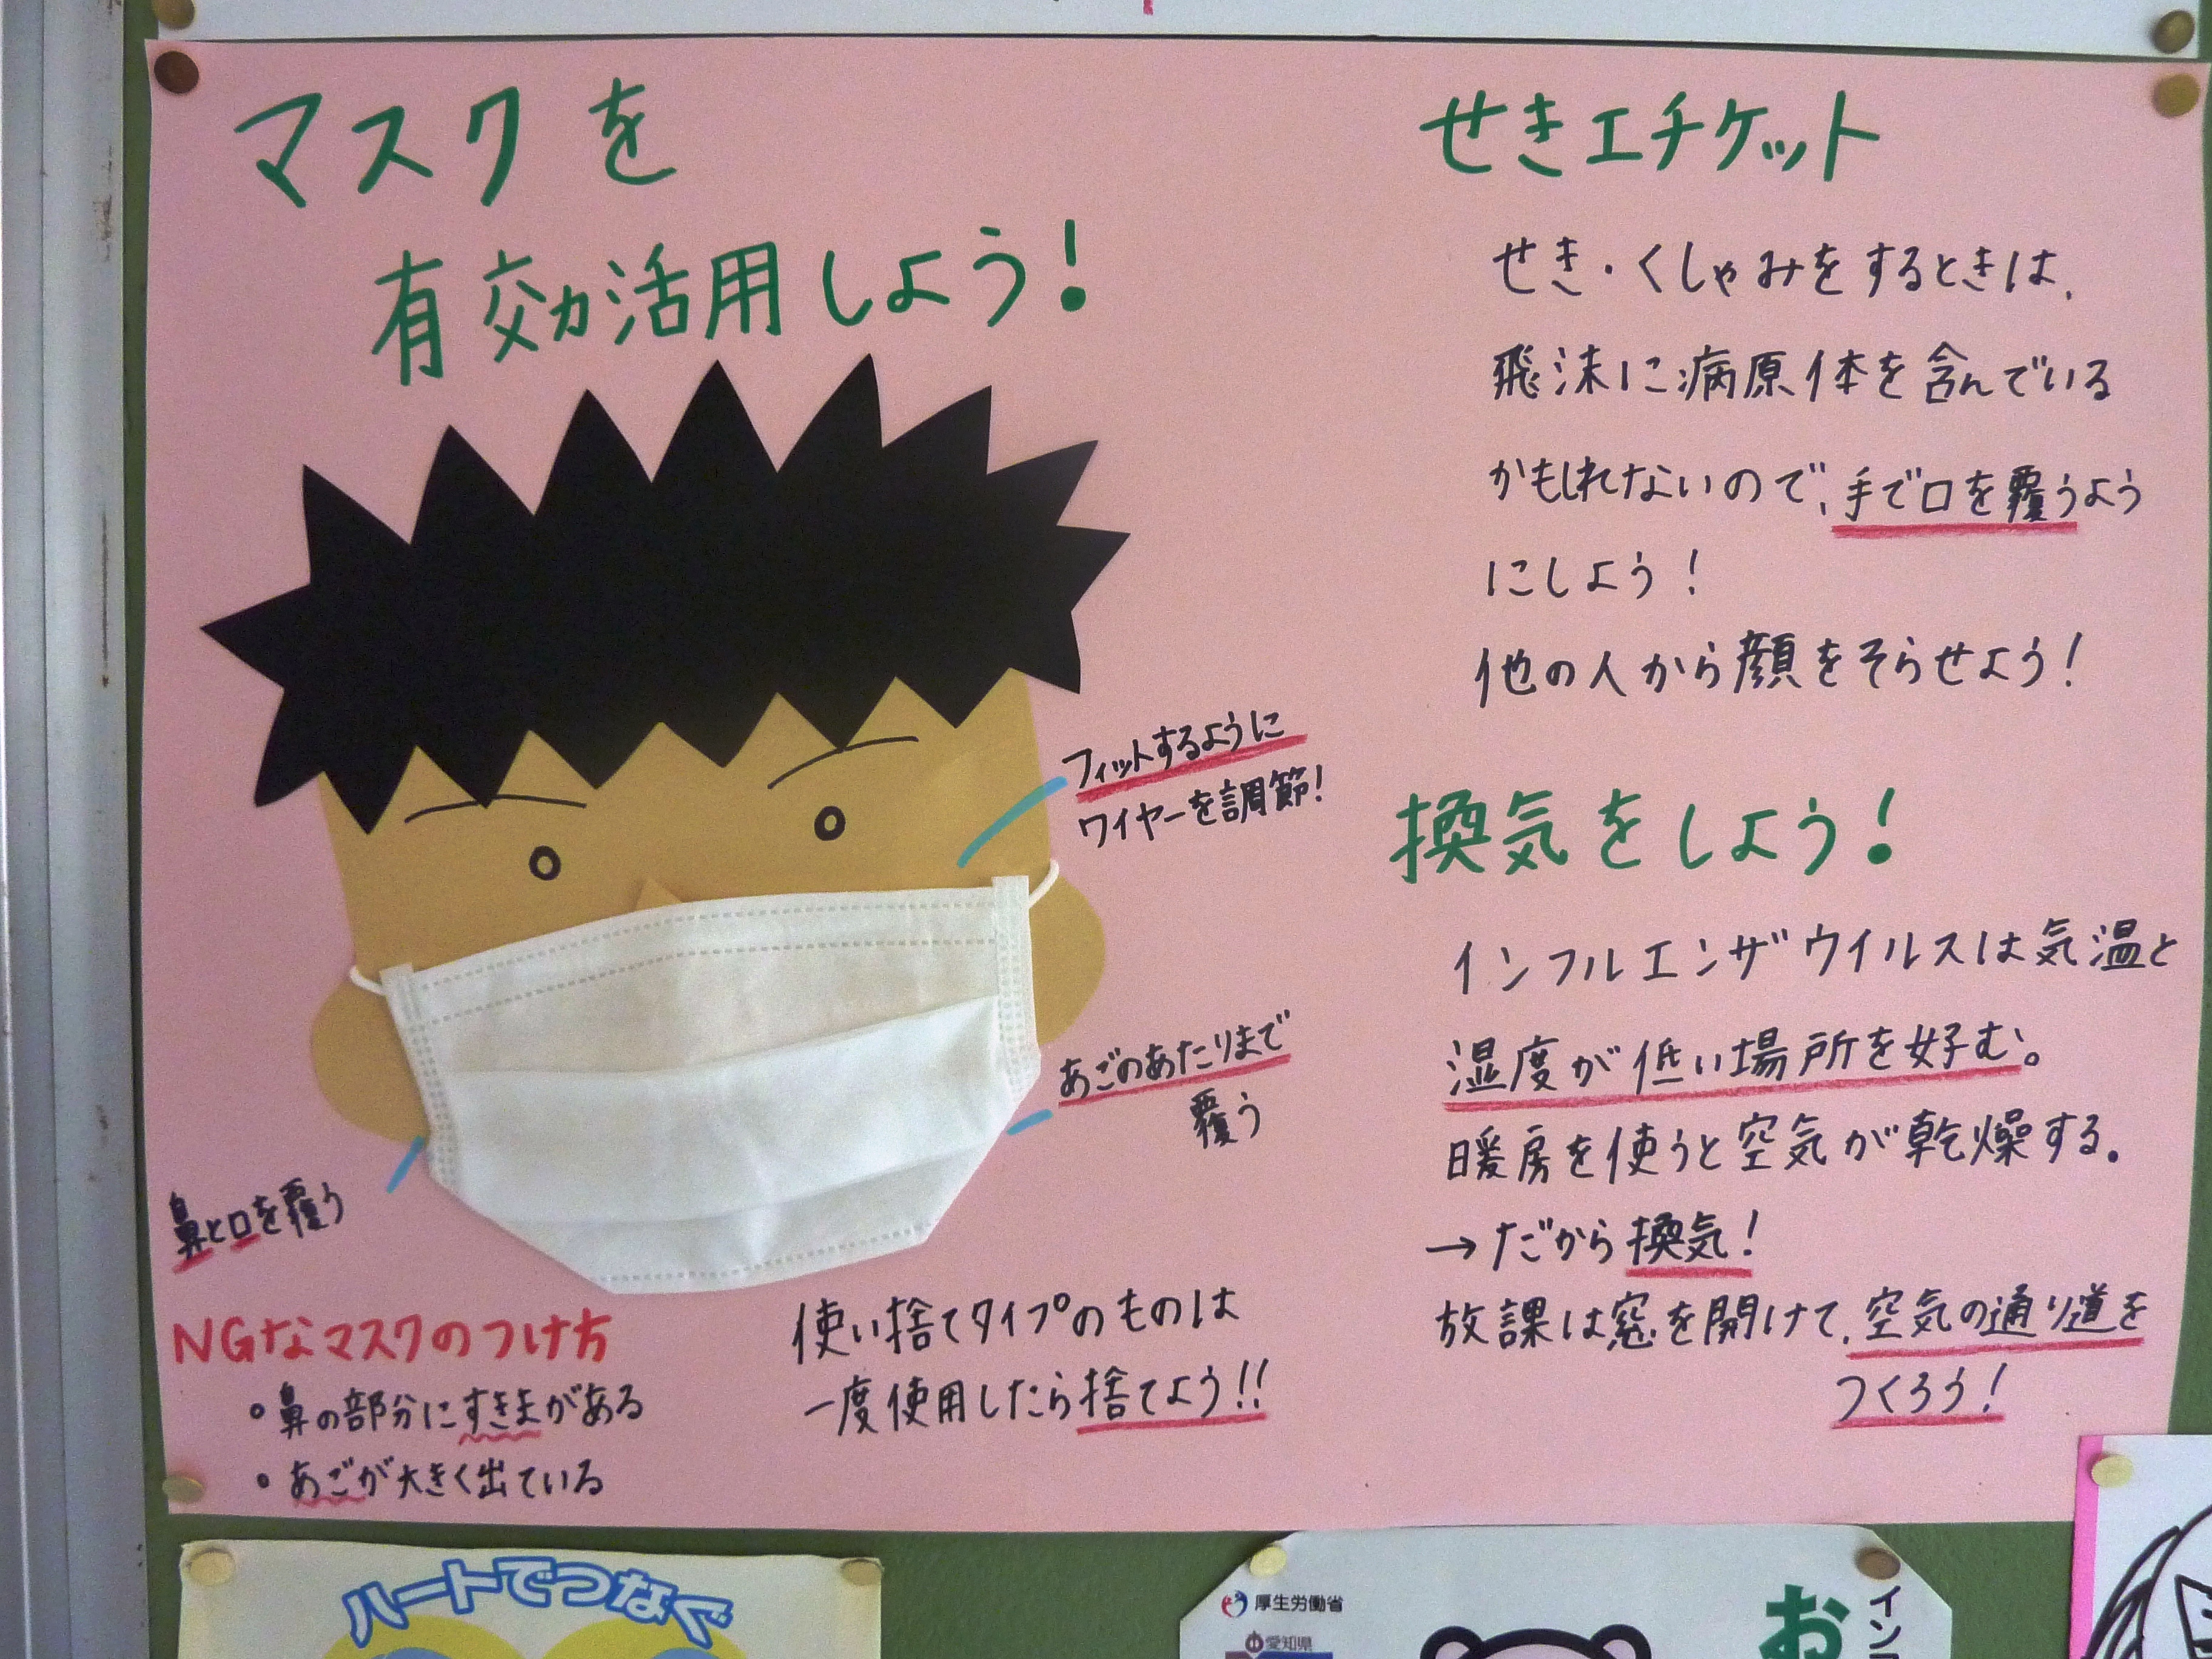 マスクを
有効活用しよう!
フィットするように
ワイヤーを調節!
あごのあたりまで
覆う
鼻と口を覆う
NGなマスクのつけ方
・鼻の部分にすきまがある
・あごが大きく出ている
使い捨てタイプのものは
一度使用したら捨てよう!!
せきエチケット
せき・くしゃみをするときは、
飛沫に病原体を含んでいる
かもしれないので、手で口を覆うよう
にしよう!
他の人から顔をそらせよう!
換気をしよう!
インフルエンザウイルスは気温と
湿度が低い場所を好む。
暖房を使うと空気が乾燥する。
→だから換気!
放課は窓を開けて、空気の通り道を
つくろう!
ハートでつなぐ
厚生労働省
愛知県
お
イン